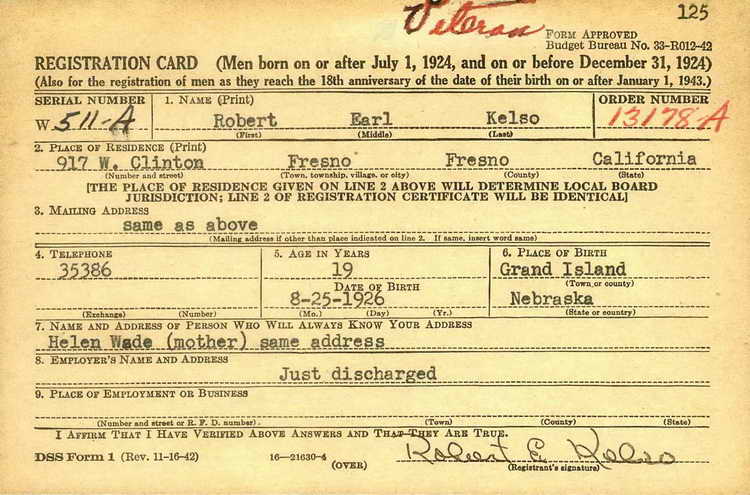 125
Veteran
FORM APPROVED
Budget Bureau No. 33-R012-42
REGISTRATION CARD (Men born on or after July 1, 1924, and on or before December 31, 1924)
(Also for the registration of men as they reach the 18th anniversary of the date of their birth on or after January 1, 1943.)
SERIAL NUMBER 1. NAME (Print) ORDER NUMBER
W 511-A Robert Earl Kelso 13178-A
(First) (Middle) (Last)
2. PLACE OF RESIDENCE (Print)
917 W. Clinton Fresno Fresno California
(Number and street) (Town, township, village, or city) (County) (State)
[THE PLACE OF RESIDENCE GIVEN ON LINE 2 ABOVE WILL DETERMINE LOCAL BOARD
JURISDICTION; LINE 2 OF REGISTRATION CERTIFICATE WILL BE IDENTICAL]
3. MAILING ADDRESS
same as above
(Mailing address if other than place indicated on line 2. If same, insert word same)
4. TELEPHONE 5. AGE IN YEARS 6. PLACE OF BIRTH
35386 19 Grand Island
DATE OF BIRTH (Town or county)
8-25-1926 Nebraska
(Exchange) (Number) (Mo.) (Day) (Yr.) (State or country)
7. NAME AND ADDRESS OF PERSON WHO WILL ALWAYS KNOW YOUR ADDRESS
Helen Wade (mother) same address
8. EMPLOYER'S NAME AND ADDRESS
Just discharged
9. PLACE OF EMPLOYMENT OR BUSINESS
(Number and street or R. F. D. number) (Town) (County) (State)
I AFFIRM THAT I HAVE VERIFIED ABOVE ANSWERS AND THAT THEY ARE TRUE.
DSS Form 1 (Rev. 11-16-42) 16—21630-4 Robert E. Kelso
(OVER) (Registrant's signature)